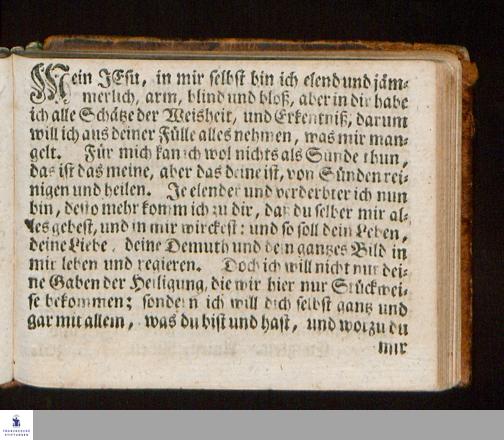 Mein JEsu, in mir selbst bin ich elend und jäm-
merlich, arm, blind und bloß, aber in dir habe
ich alle Schätze der Weisheit, und Erkentniß, darum
will ich aus deiner Fülle alles nehmen, was mir man-
gelt. Für mich kan ich wol nichts als Sünde thun,
das ist das meine, aber das deine ist, von Sünden rei-
nigen und heilen. Je elender und verderbter ich nun
bin, desto mehr komm ich zu dir, daß du selber mir al-
les gebest, und in mir wirckest: und so soll dein Leben,
deine Liebe, deine Demuth und dein gantzes Bild in
mir leben und regieren. Doch ich will nicht nur dei-
ne Gaben der Heiligung, die wir hier nur Stückwei-
se bekommen; sondern ich will dich selbst gantz und
gar mit allem, was du bist und hast, und wozu du
mir